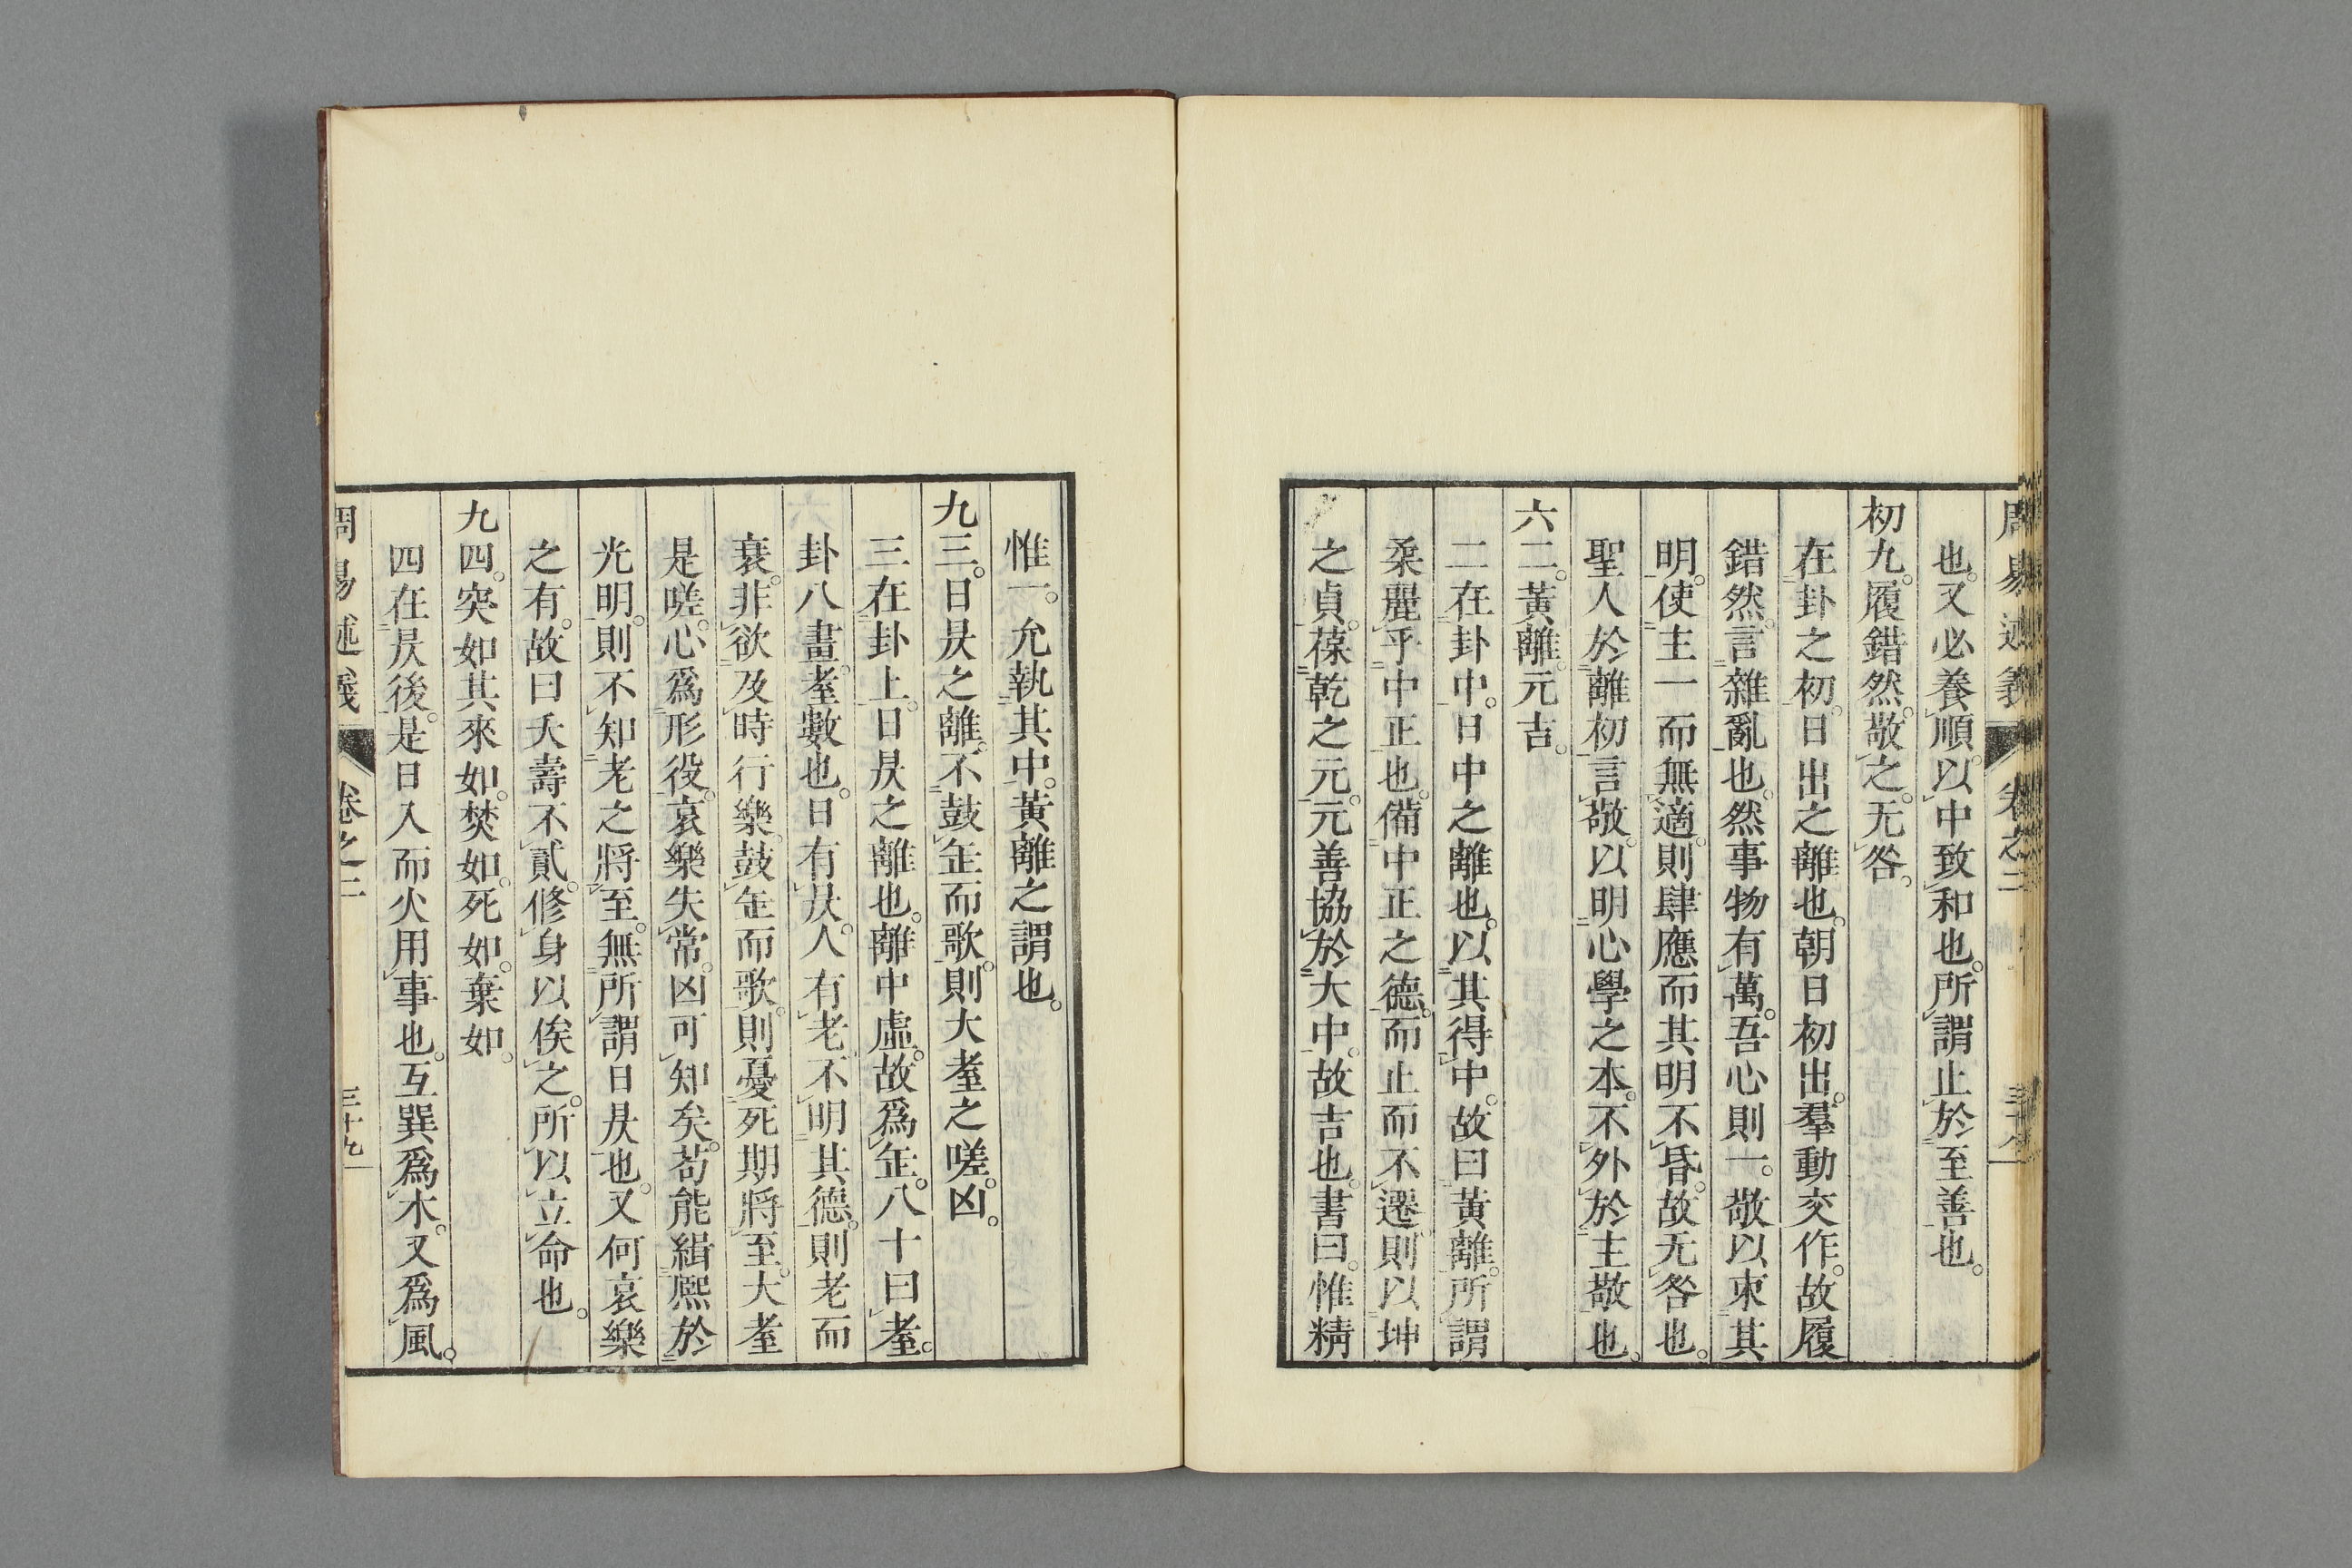 也。又必養順。以中致和也。所謂止於至善也。
初九。履錯然。敬之。无咎。
在卦之初。日出之離也。朝日初出。羣動交作。故履
錯然。言雜亂也。然事物有萬。吾心則一。敬以束其
明。使主一而無適。則肆應而其明不昏。故无咎也。
聖人於離初言敬。以明心學之本。不外於主敬也。
六二。黃離。元吉。
二在卦中。日中之離也。以其得中。故曰黃離。所謂
柔麗乎中正也。備中正之德。而止而不遷。則以坤
之貞。葆乾之元。元善協於大中。故吉也。書曰。惟精
惟一。允執其中。黃離之謂也。
九三。日昃之離。不鼓缶而歌。則大耋之嗟。凶。
三在卦上。日昃之離也。離中虛。故爲缶。八十曰耋。
卦八畫。耋數也。日有昃。人有老。不明其德。則老而
衰。非欲及時行樂。鼓缶而歌。則憂死期將至。大耋
是嗟。心爲形役。哀樂失常。凶可知矣。苟能緝熙於
光明。則不知老之將至。無所謂日昃也。又何哀樂
之有。故曰夭壽不貳。修身以俟之。所以立命也。
九四。突如其來如。焚如。死如。棄如。
四在昃後。是日入而火用事也。互巽爲木。又爲風。
周易述義
卷之二
三十九